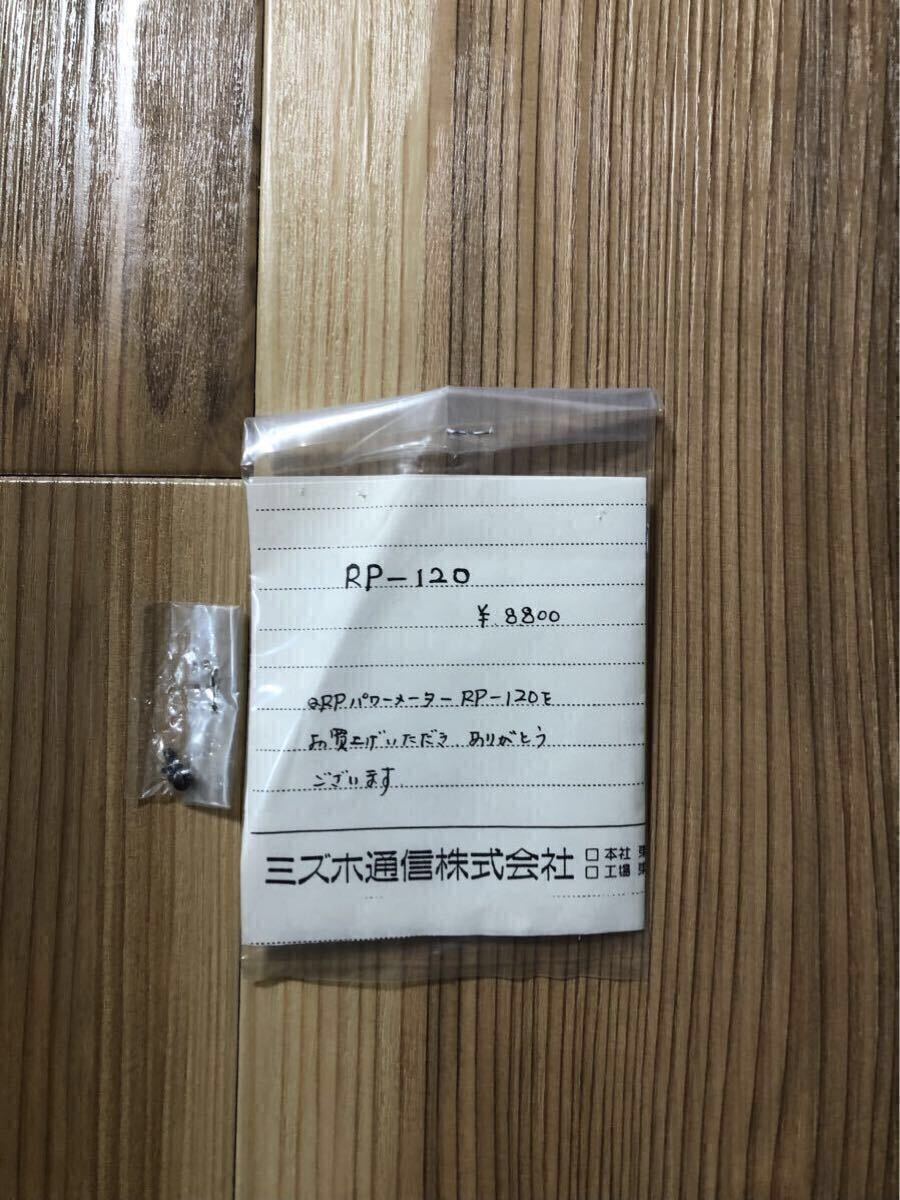 RP-120
¥ 8800
QRPパワーメーター RP-120を
お買上げいただき、ありがとう
ございます.
ミズホ通信株式会社
□ 本社 東
□ 工場 東